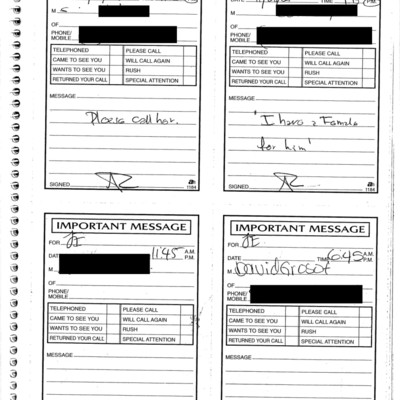 M
OF
PHONE/
MOBILE
TELEPHONED PLEASE CALL
CAME TO SEE YOU WILL CALL AGAIN
WANTS TO SEE YOU RUSH
RETURNED YOUR CALL SPECIAL ATTENTION
MESSAGE
Please call her.
SIGNED 1184
TIME P.M.
M
OF
PHONE/
MOBILE
TELEPHONED PLEASE CALL
CAME TO SEE YOU WILL CALL AGAIN
WANTS TO SEE YOU RUSH
RETURNED YOUR CALL SPECIAL ATTENTION
MESSAGE
"I have a Female
for him"
SIGNED 1184
IMPORTANT MESSAGE
FOR JE
DATE 11:45 A.M.
P.M.
M
OF
PHONE/
MOBILE
TELEPHONED PLEASE CALL
CAME TO SEE YOU WILL CALL AGAIN
WANTS TO SEE YOU RUSH
RETURNED YOUR CALL SPECIAL ATTENTION
MESSAGE
IMPORTANT MESSAGE
FOR JE
DATE TIME 6:45 A.M.
P.M.
M David Grosof
OF
PHONE/
MOBILE
TELEPHONED PLEASE CALL
CAME TO SEE YOU WILL CALL AGAIN
WANTS TO SEE YOU RUSH
RETURNED YOUR CALL SPECIAL ATTENTION
MESSAGE